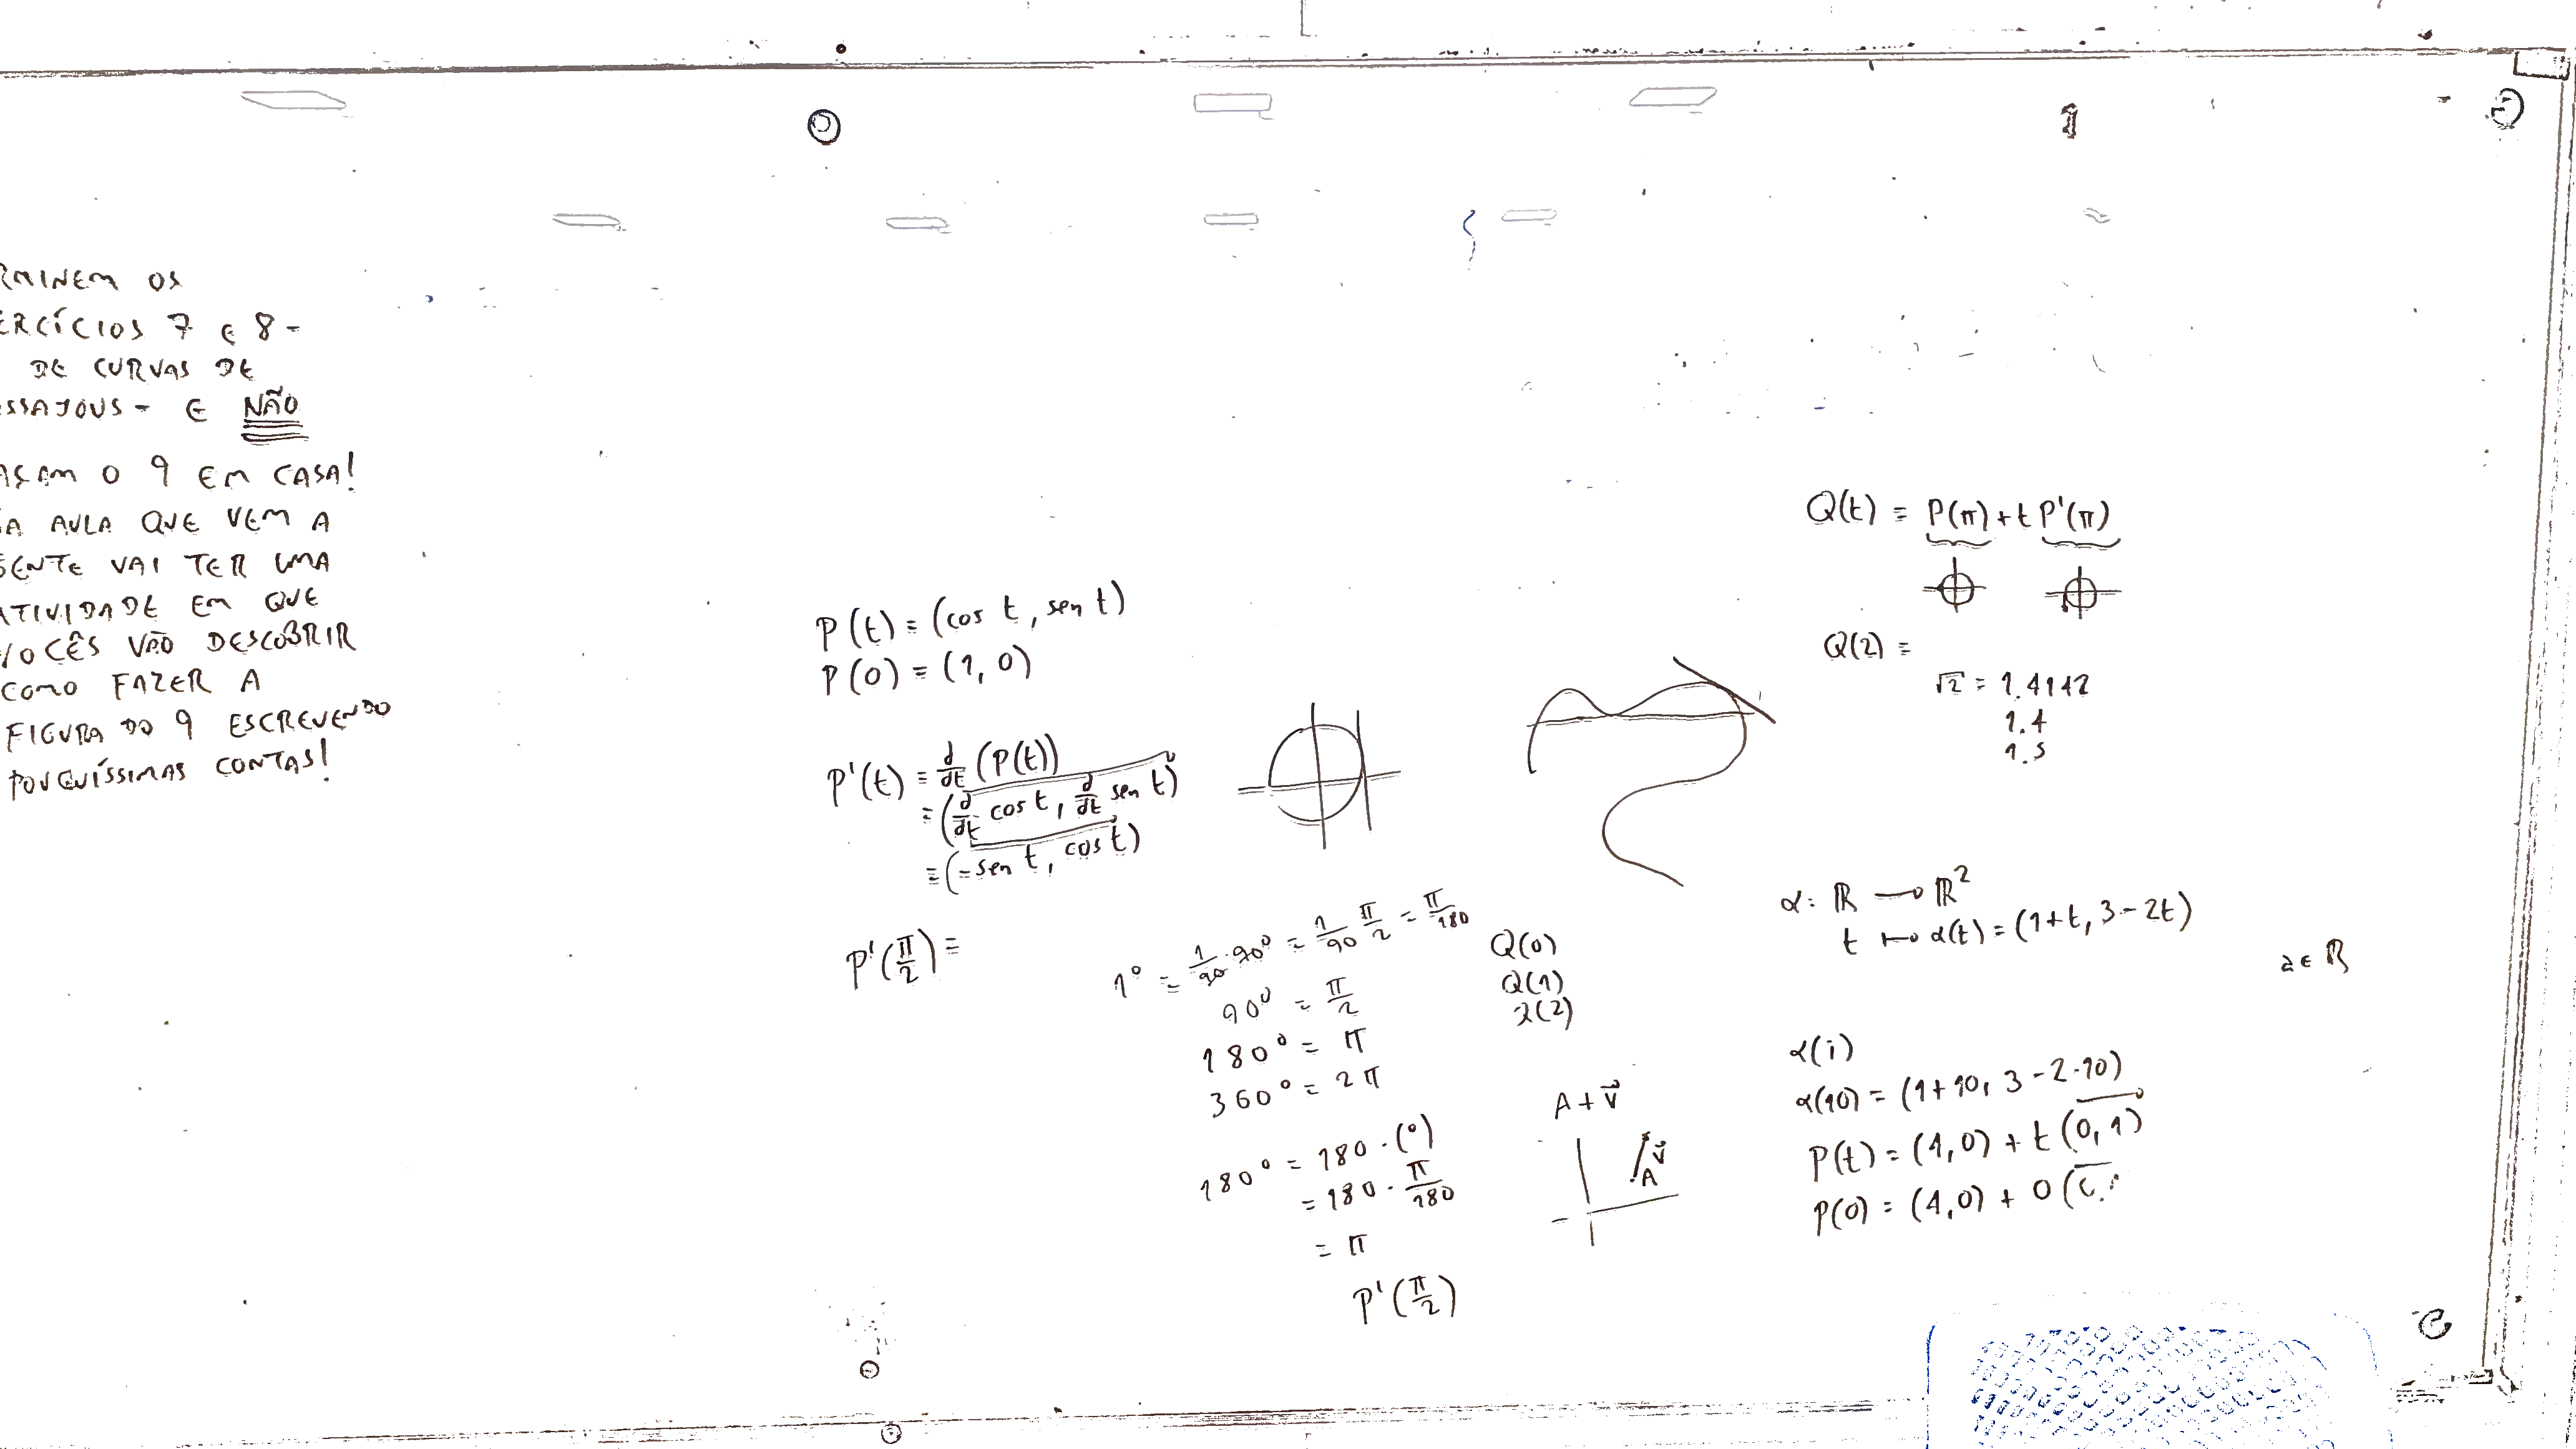 RMINEM OS
ERCÍCIOS 7 E 8 -
DE CURVAS DE
SSAJOUS - E NÃO
AÇAM O 9 EM CASA!
A AULA QUE VEM A
GENTE VAI TER UMA
ATIVIDADE EM QUE
VOCÊS VÃO DESCOBRIR
COMO FAZER A
FIGURA DO 9 ESCREVENDO
POUQUÍSSIMAS CONTAS!
P(t) = (cos t, sen t)
P(0) = (1, 0)
P'(t) = d/dt (P(t))
= (d/dt cos t, d/dt sen t)
= (-sen t, cos t)
P'(π/2) =
1° = 1/90 · 90° = 1/90 π/2 = π/180
90° = π/2
180° = π
360° = 2π
180° = 180 · (°)
= 180 · π/180
= π
P'(π/2)
Q(0)
Q(1)
Q(2)
A + v⃗
v⃗
A
Q(t) = P(π) + t P'(π)
Q(2) =
√2 = 1.4142
1.4
1.5
α: ℝ → ℝ²
t ↦ α(t) = (1+t, 3-2t)
a ∈ ℝ
α(i)
α(10) = (1+10, 3-2·10)
P(t) = (4,0) + t (0,1)
P(0) = (4,0) + 0 (